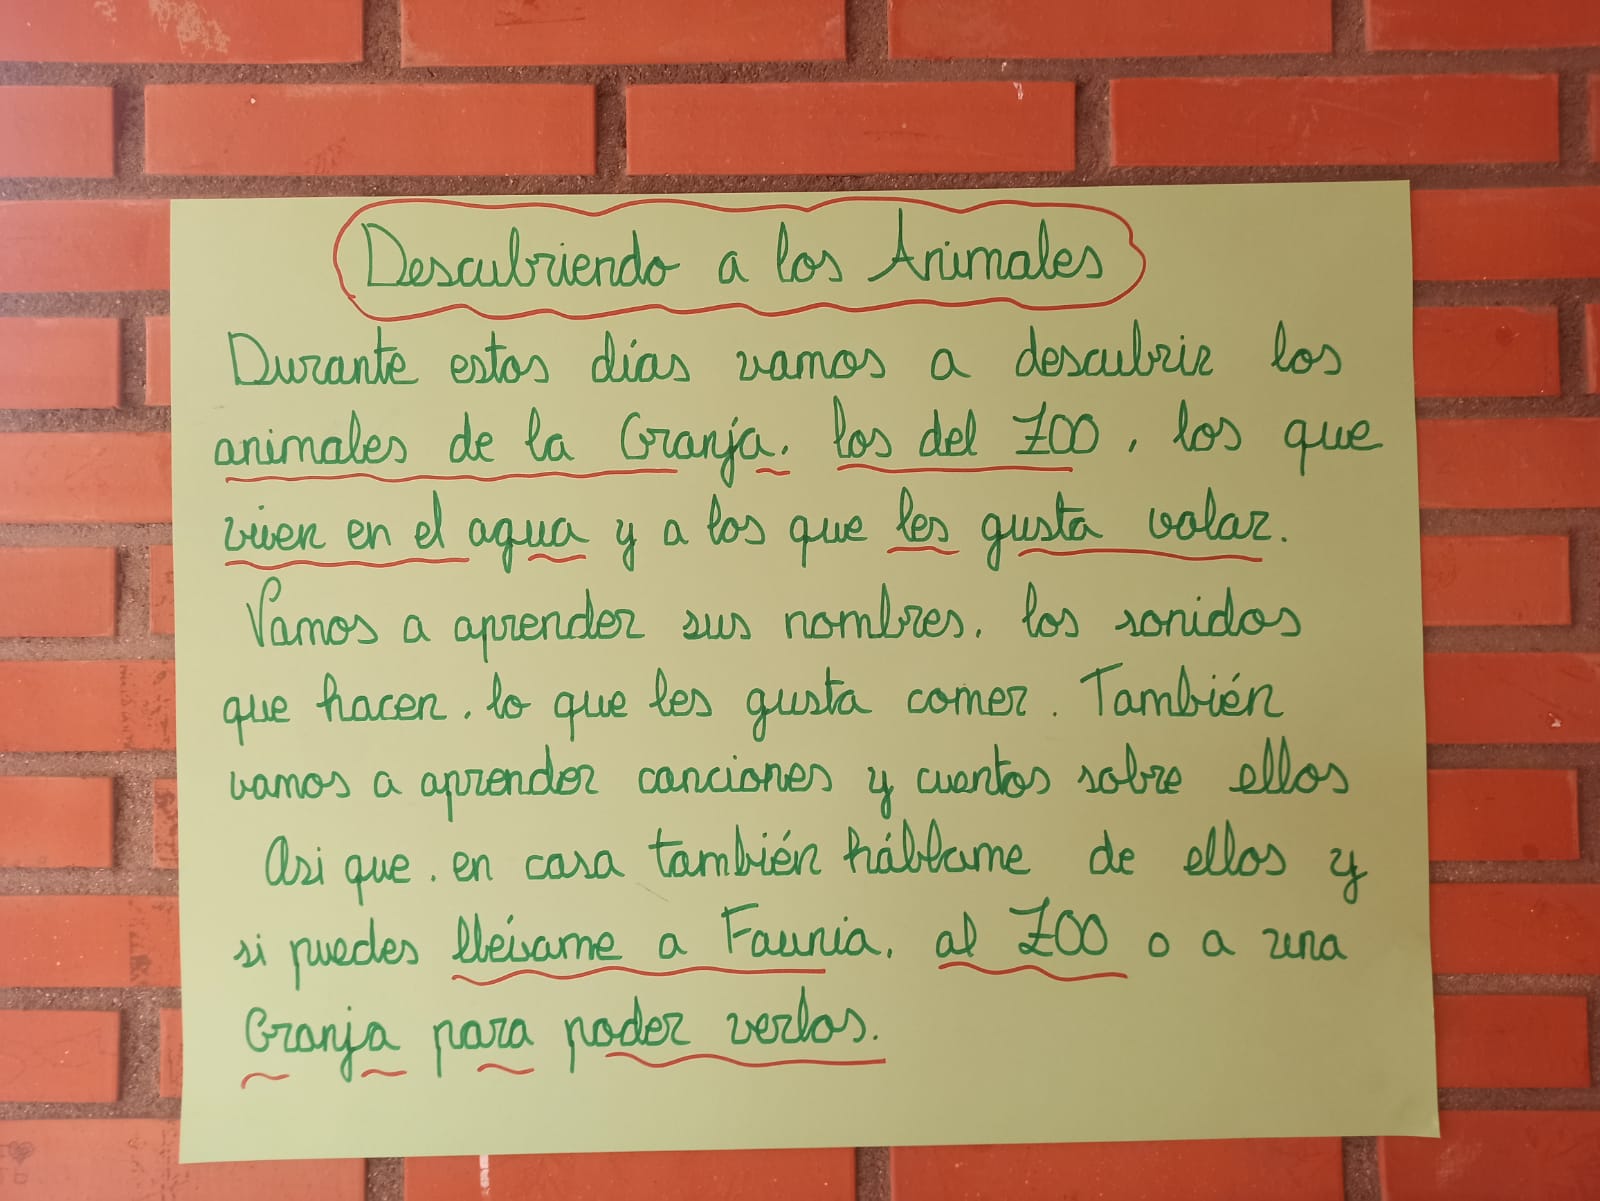 Descubriendo a los Animales
Durante estos días vamos a descubrir los
animales de la Granja, los del ZOO, los que
viven en el agua y a los que les gusta volar.
Vamos a aprender sus nombres, los sonidos
que hacen, lo que les gusta comer. También
vamos a aprender canciones y cuentos sobre ellos
Asi que, en casa también háblame de ellos y
si puedes llévame a Faunia, al ZOO o a una
Granja para poder verlos.